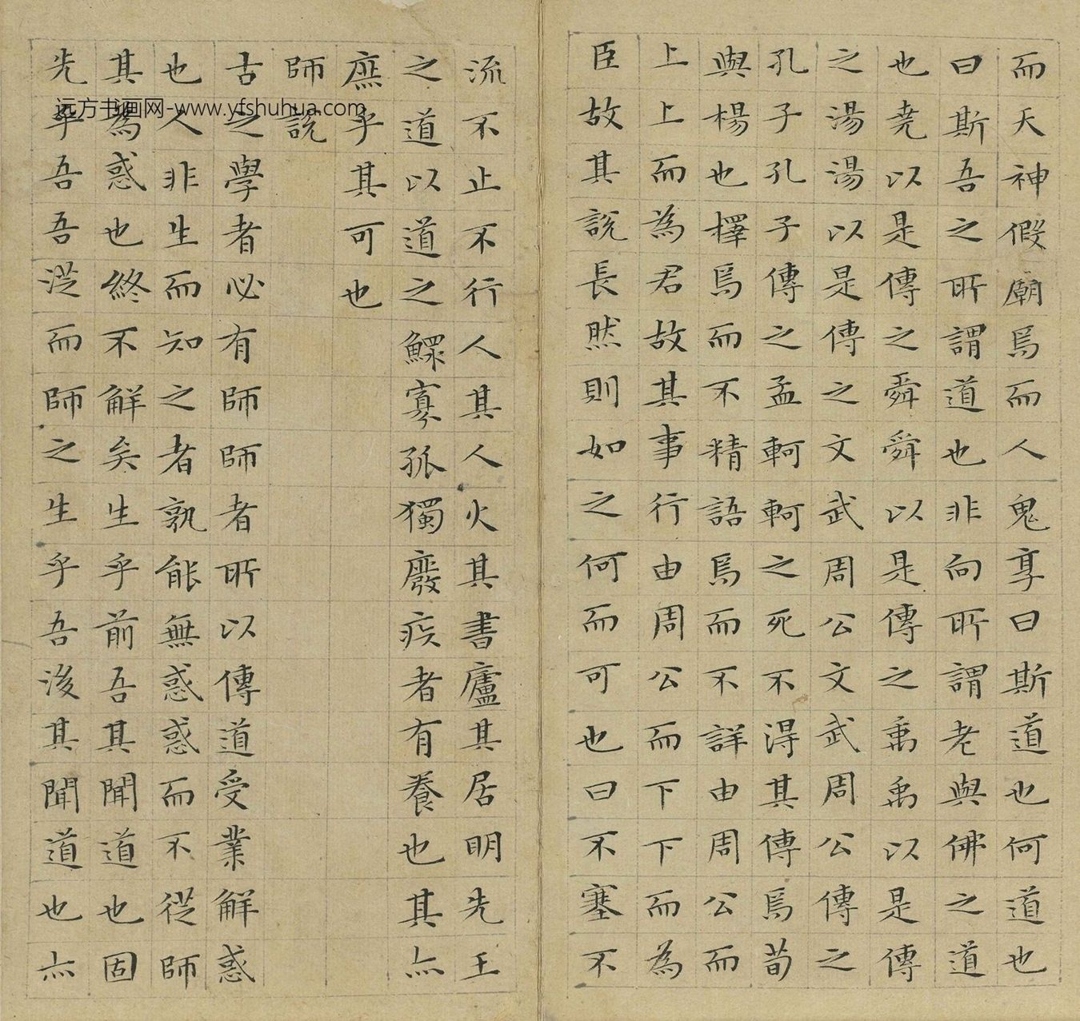 而天神假廟焉而人鬼享曰斯道也何道也
曰斯吾之所謂道也非向所謂老與佛之道
也堯以是傳之舜舜以是傳之禹禹以是傳
之湯湯以是傳之文武周公文武周公傳之
孔子孔子傳之孟軻軻之死不得其傳焉荀
與楊也擇焉而不精語焉而不詳由周公而
上上而為君故其事行由周公而下下而為
臣故其說長然則如之何而可也曰不塞不
流不止不行人其人火其書廬其居明先王
之道以道之鰥寡孤獨廢疾者有養也其亦
庶乎其可也
師說
古之學者必有師師者所以傳道受業解惑
也人非生而知之者孰能無惑惑而不從師
其為惑也終不解矣生乎前吾其聞道也固
先乎吾吾從而師之生乎吾後其聞道也亦
远方书画网-www.yfshuhua.com